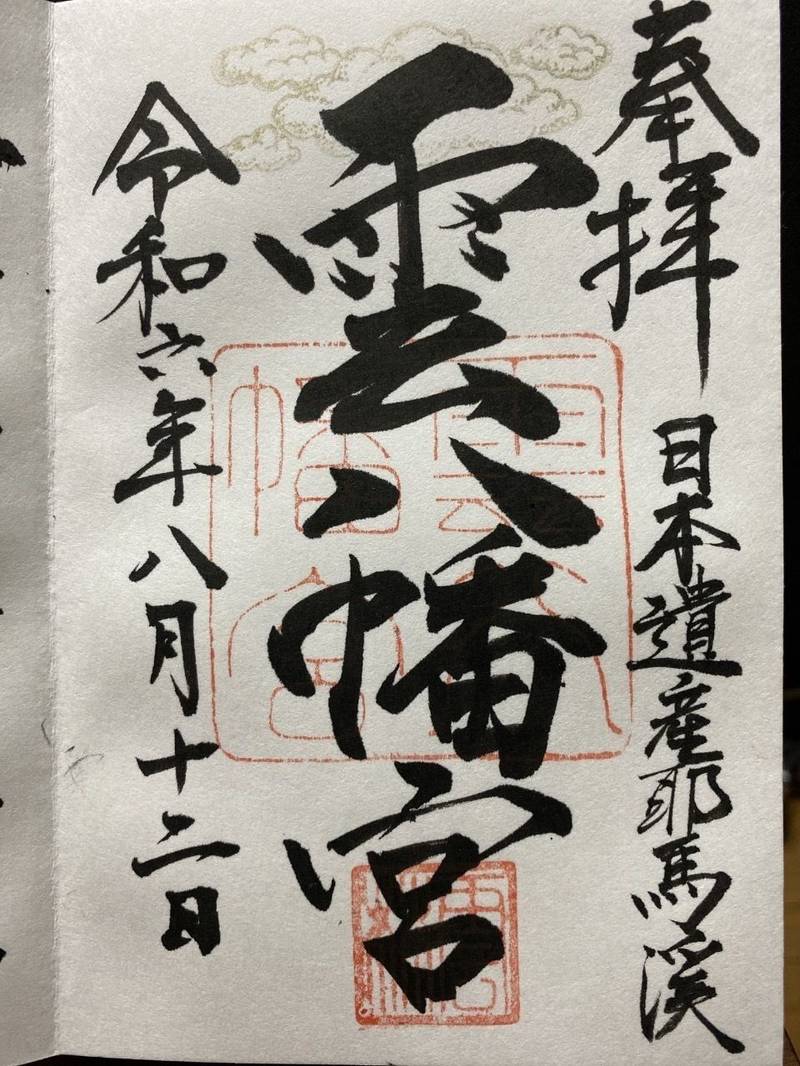 奉拝
日本遺産耶馬溪
雲八幡宮
雲八幡宮
令和六年八月十二日